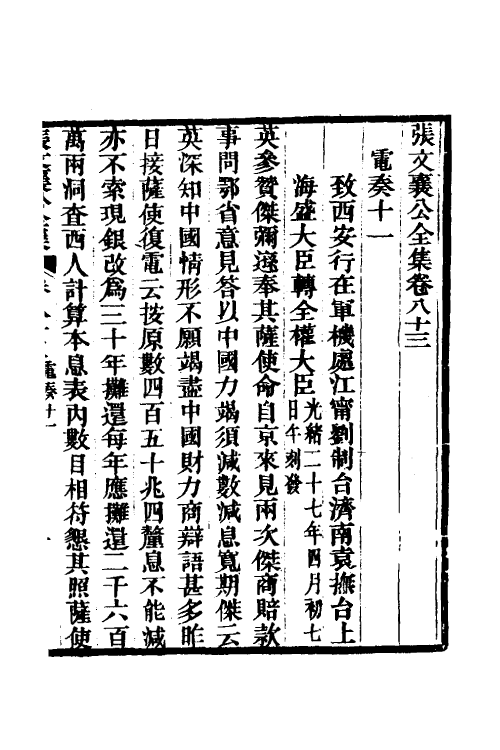 張文襄公全集卷八十三
電奏十一
致西安行在軍機處江甯劉制台濟南袁撫台上
海盛大臣轉全權大臣光緒二十七年四月初七
日午刻發
英參贊傑彌遜奉其薩使命自京來見兩次傑商賠款
事問鄂省意見答以中國力竭須減數減息寬期傑云
英深知中國情形不願竭盡中國財力商辯語甚多昨
日接薩使復電云按原數四百五十兆四釐息不能減
亦不索現銀改爲三十年攤還每年應攤還二千六百
萬兩洞查西人計算本息表內數目相符懇其照薩使
電奏十一